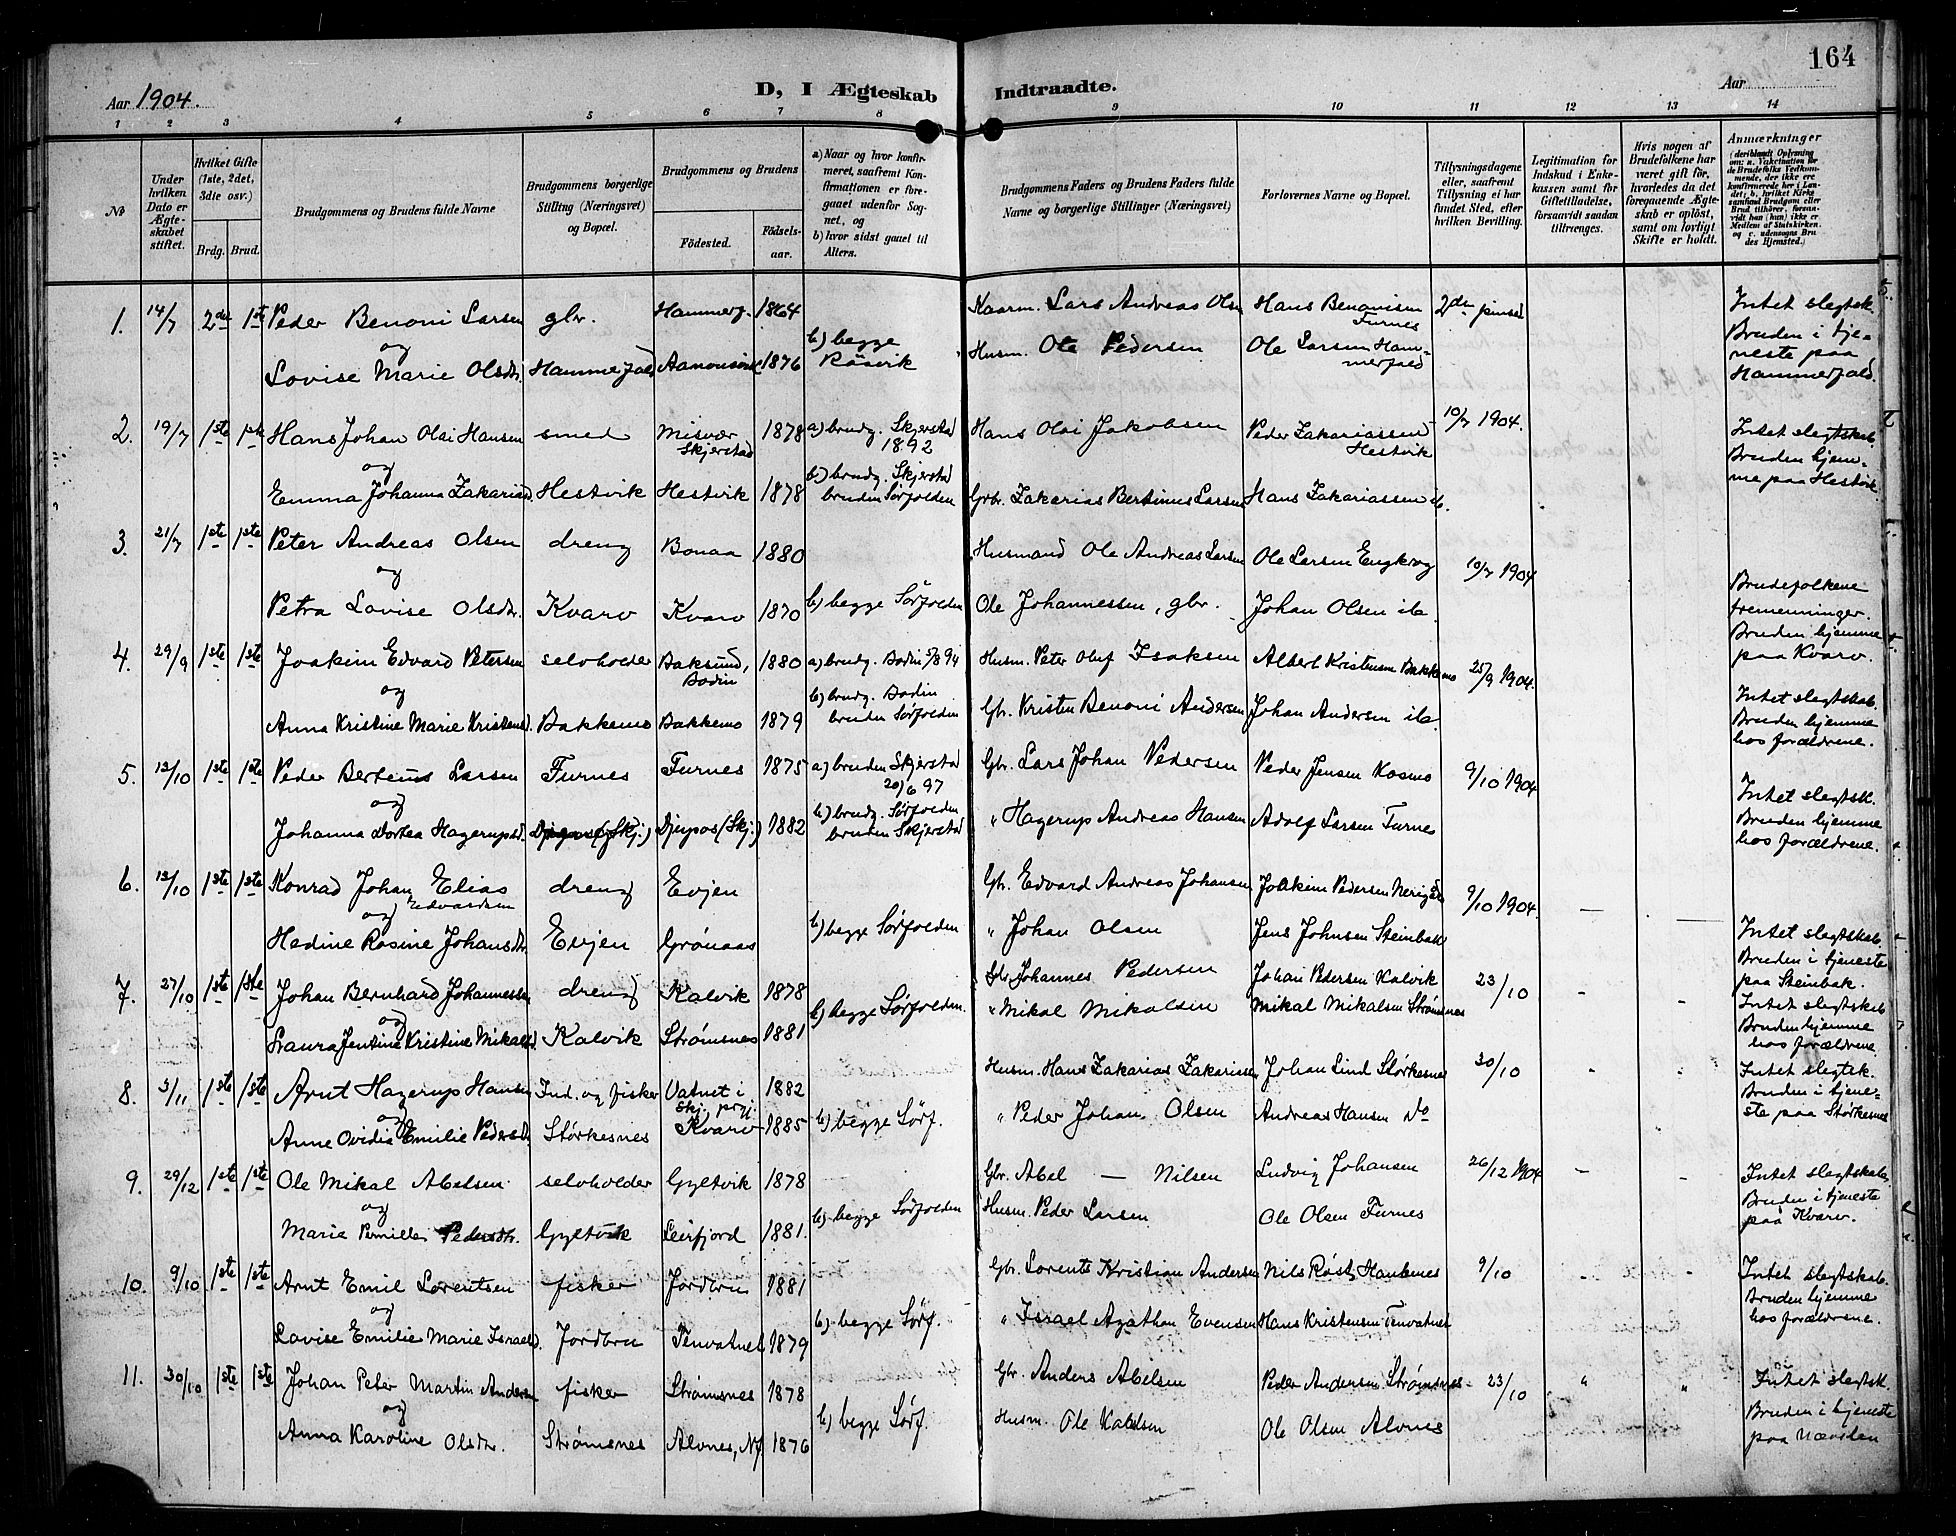 164
Aar 1904.
D, I Ægteskab Indtraadte.
Aar
1 2 3 4 5 6 7 8 9 10 11 12 13 14
No
Under hvilken Dato er Ægteskabet stiftet.
Hvilket Gifte (1ste, 2det, 3die osv.)
Brdg. Brud.
Brudgommens og Brudens fulde Navne
Brudgommens borgerlige Stilling (Næringsvei) og Bopæl.
Brudgommens og Brudens
Fødested.
Fødselsaar.
a) Naar og hvor konfirmeret, saafremt Konfirmationen er foregaaet udenfor Sognet, og
b) hvor sidst gaaet til Alters.
Brudgommens Faders og Brudens Faders fulde Navne og borgerlige Stillinger (Næringsvei)
Forlovernes Navne og Bopæl.
Tillysningsdagene eller, saafremt Tillysning ei har fundet Sted, efter hvilken Bevilling.
Legitimation for Indskud i Enkekassen samt for Giftetilladelse, forsaavidt saadan tiltrænges.
Hvis nogen af Brudefolkene har været gift før, hvorledes da det foregaaende Ægteskab er opløst, samt om lovligt Skifte er holdt.
Anmærkninger
(deriblandt Oplysning om: a. Vakcination for de Brudefolks Vedkommende, der ikke ere konfirmerede her i Landet; b. hvilket Kirkesamfund Brudgom eller Brud tilhører, forsaavidt han (hun) ikke er Medlem af Statskirken, og c. udensogns Brudes Hjemsted.)
1. 14/7 2den 1ste Peder Benoni Larsen gbr. Hammerf. 1864 Kaarm. Lars Andreas Olsen Hans Benonisen Furnes 2den pinsed
og b) begge Røsvik
Lovise Marie Olsdtr. Hammerfald 1876 Husm. Ole Pedersen Ole Larsen Hammerfald
Intet slegtsk. Bruden i tjeneste paa Hammerfald.
2. 19/7 1ste 1ste Hans Johan Olai Hansen smed Misvær Skjerstad 1878 a) brudg. Skjerstad 1892 Hans Olai Jakobsen Peder Zakariassen Hestvik 10/7 1904.
og b) brudg. Skjerstad bruden Sørfolden
Emma Johanna Zakariasd. Hestvik Hestvik 1878 Gbr. Zakarias Bertinus Larsen Hans Zakariassen ib.
Intet slegtskab Bruden hjemme paa Hestvik
3. 21/7 1ste 1ste Peter Andreas Olsen dreng Bonaa 1880 Husmand Ole Andreas Larsen Ole Larsen Engkrog 10/7 1904
og
Petra Lovise Olsdtr. Kvarv Kvarv 1870 b) begge Sørfolden Ole Johannessen, gbr. Johan Olsen ib
Brudefolkene tremenninger. Bruden hjemme paa Kvarv.
4. 29/9 1ste 1ste Joakim Edvard Petersen selvholder Baksund, Bodin 1880 a) brudg. Bodin 5/8 94 Husm. Peter Oluf Isaksen Albert Kristensen Bakkemo 25/9 1904.
og b) brudg. Bodin bruden Sørfolden
Anna Kristine Marie Kristensd. Bakkemo Bakkemo 1879 Gbr. Kristen Benoni Andersen Johan Andersen ib
Intet slegtskab. Bruden hjemme hos forældrene.
5. 13/10 1ste 1ste Peder Berteus Larsen Furnes Furnes 1875 a) bruden Skjerstad 20/6 97 Gbr. Lars Johan Pedersen Peder Jensen Kosmo 9/10 1904
og b) brudg. Sørfolden bruden Skjerstad
Johanna Dortea Hagerupsd. Djupos (Skj.) Djupos (Skj.) 1882 " Hagerup Andreas Hansen Adolf Larsen Furnes
Intet slegtsk. Bruden hjemme hos forældrene.
6. 13/10 1ste 1ste Konrad Johan Elias Edvardsen dreng Evjen Gbr. Edvard Andreas Johansen Joakim Pedersen 9/10 1904. — —
og b) begge Sørfolden
Hedine Rosine Johansdtr. Evjen Grønaas " Johan Olsen Jens Johnsen Steinbak
Intet slegtskab. Bruden i tjeneste paa Steinbak.
7. 27/10 1ste 1ste Johan Bernhard Johannessen dreng Kalvik 1878 Gbr. Johannes Pedersen Johan Pedersen Kalvik 23/10 - -
og b) begge Sørfolden.
Laura Jentine Kristine Mikalsd. Kalvik Strømsnes 1881 " Mikal Mikalsen Mikal Mikalsen Strømsnes
Intet slegtskab Bruden hjemme hos forældrene.
8. 3/11 1ste 1ste Arnt Hagerup Hansen Ind. og fisker Vatnet i Skj. prgj. 1882 Husm. Hans Zakarias Zakariassen Johan Lind Størkesnes 30/10 - -
og b) begge Sørf.
Anne Ovidia Emilie Pedersdtr. Størkesnes Kvarv 1885 " Peder Johan Olsen Andreas Hansen Do
Intet slegtsk. Bruden i tjeneste paa Størkesnes
9. 29/12 1ste 1ste Ole Mikal Abelsen selvholder Gyltvik 1878 Gbr. Abel — Nilsen Ludvig Johansen 26/12 1904 — -
og b) begge Sørfolden
Marie Pernille Pedersdtr. Gyltvik Leirfjord 1881. Husm. Peder Larsen Ole Olsen Furnes
Intet slegtskab, Bruden i tjeneste paa Kvarv.
10. 9/10 1ste 1ste Arnt Emil Lorentsen fisker Jordbru 1881 Gbr. Lorents Kristian Andersen Nils Røst, 9/10 - -
og b) begge Sørf.
Lovise Emilie Marie Israelsd. Jordbru Tenvatnet 1879 " Israel Agathon Evensen Hans Kristensen Tenvatnet
Intet slegtskab. Bruden hjemme hos forældrene.
11. 30/10 1ste 1ste Johan Peter Martin Andersen fisker Strømsnes 1878 Gbr. Anders Abelsen Peder Andersen Strømsnes 23/10 " "
og b) begge Sørf.
Anna Karoline Olsdtr. Strømsnes Alvnes, Nf 1876 Husm. Ole Ole Olsen Alvnes
Intet slegtsk. Bruden i tjeneste paa